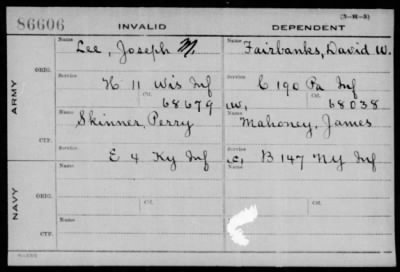 (3-H-3)
86606 INVALID DEPENDENT
ARMY
ORIG.
Name Lee, Joseph M. Name Fairbanks, David W.
Service H 11 Wis Inf Service C 190 Pa Inf
Ctf. 68679 (W) Ctf. 68038
CTF.
Name Skinner, Perry Name Mahoney, James
E 4 Ky Inf (C) B 147 NY Inf
NAVY
ORIG.
Name Name
Service Ctf. Service Ctf.
CTF.
Name Name